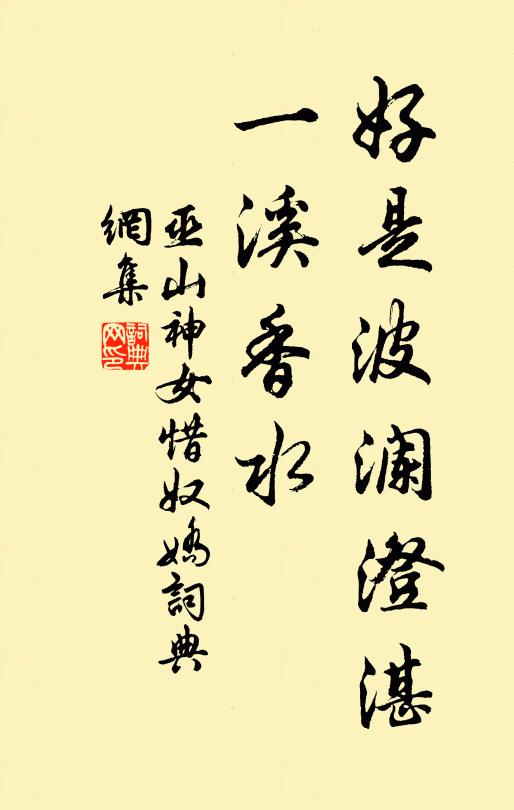 好是波澜澄湛
一溪香水
巫山神女惜奴娇詞典
網集
詞典
网印